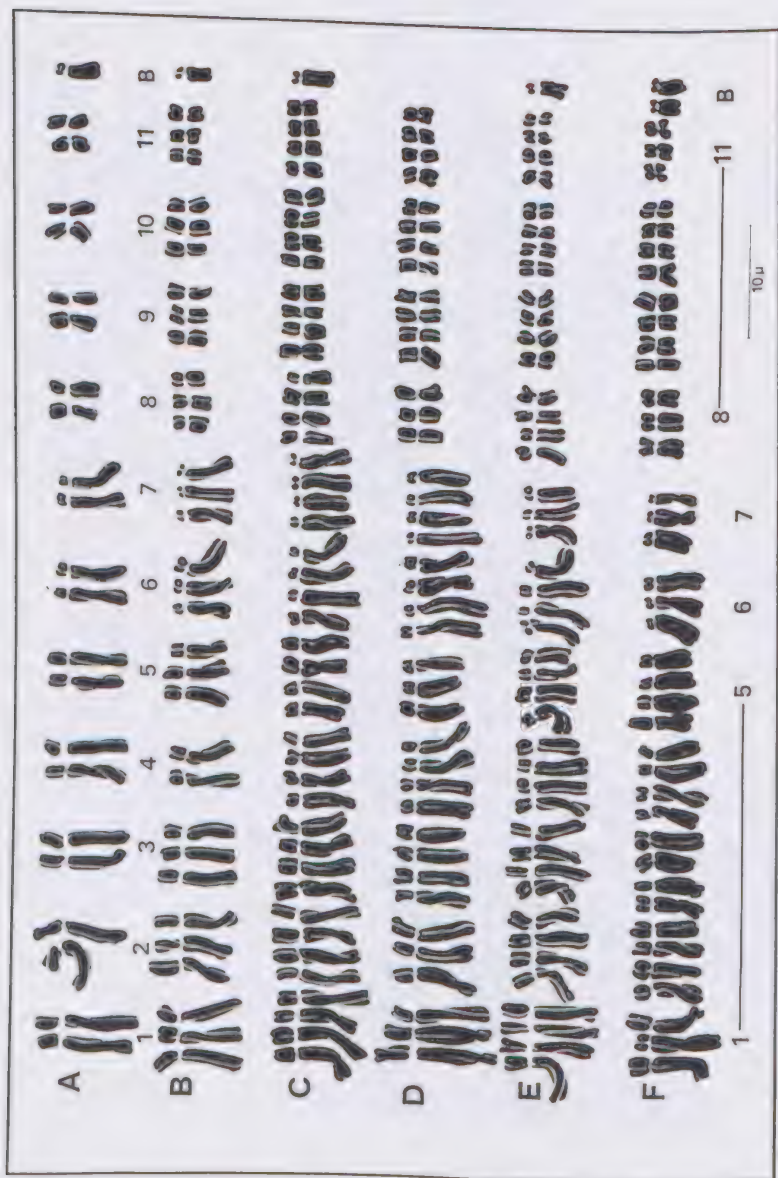 A
1 2 3 4 5 6 7 8 9 10 11 B
B
C
D
E
F
1 5 6 7 8 11 B
10 µ